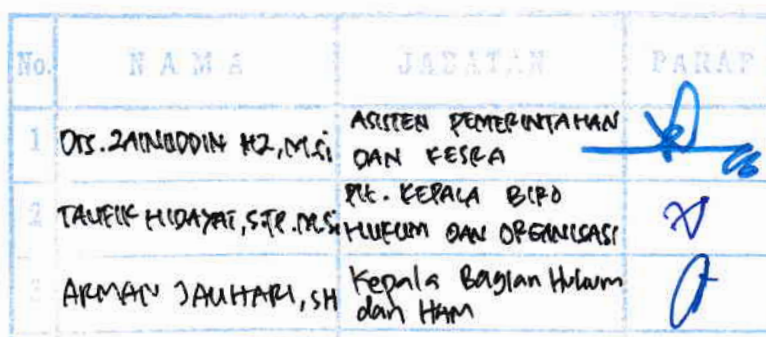 No. NAMA JABATAN PARAF
1 Drs. ZAINUDDIN HZ, M.Si ASISTEN PEMERINTAHAN
DAN KESRA
2 TAUFIK HIDAYAT, S.TP. M.Si Plt. KEPALA BIRO
HUKUM DAN ORGANISASI
3 ARMAN JAUHARI, SH Kepala Bagian Hukum
dan HAM